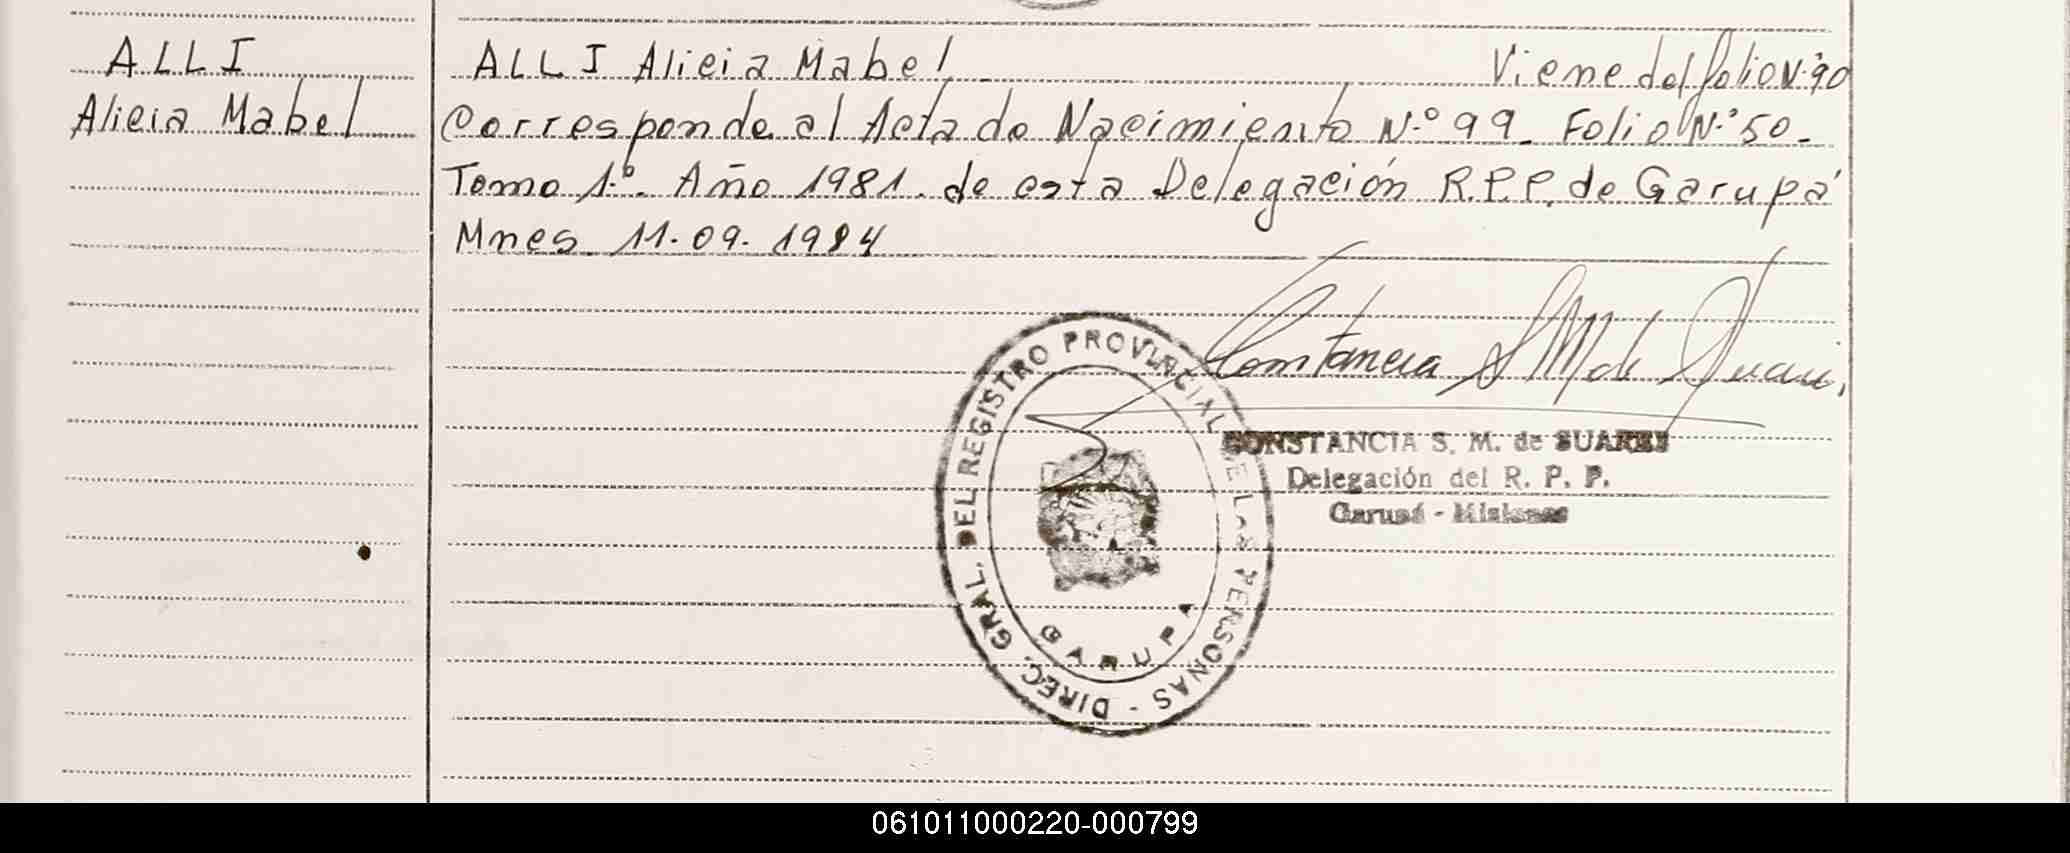 ALLI
Alicia Mabel
ALLI Alicia Mabel. Viene del folio Nº 90
Corresponde al Acta de Nacimiento N.º 99. Folio N.º 50.
Tomo 1.º. Año 1981. de esta Delegación R.P.P. de Garupá
Mnes. 11.09.1984
Constancia S M de Suarez
CONSTANCIA S. M. de SUAREZ
Delegación del R. P. P.
Garupá - Misiones
DIREC. GRAL. DEL REGISTRO PROVINCIAL DE LAS PERSONAS -
GARUPA
061011000220-000799